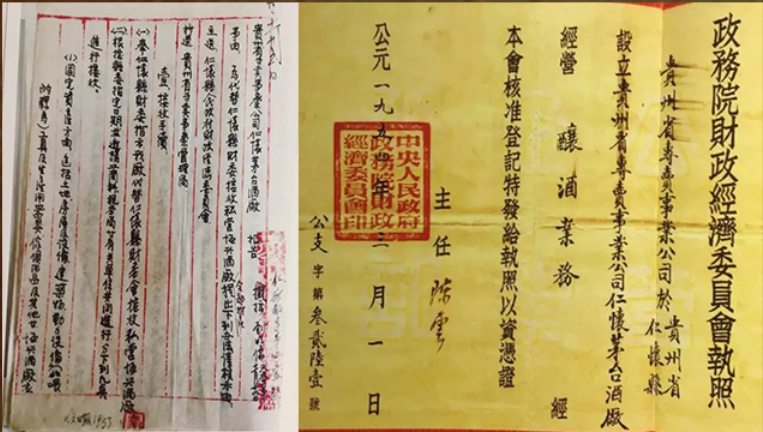 政務院財政經濟委員會執照
貴州省專賣事業公司於貴州省仁懷縣
設立貴州省專賣事業公司仁懷茅台酒廠
經營 釀酒業務 經
本會核准登記特發給執照以資憑證
主任 陳雲
公元一九五四年三月一日
中央人民政府
政務院財政
經濟委員會印
公支字第叁貳陸壹號
貴州省專賣事業公司仁懷茅台酒廠 報告
事由 為代替仁懷縣財委接收私營恆興酒廠提出下列
主送 仁懷縣人民政府財政經濟委員會
抄送 貴州省專賣事業管理局
壹、接收手續
(一)奉仁懷縣財委指示我廠代替仁懷縣財委會接收私營恆興酒廠
(二)根據縣委指定日期並邀請有關單位共同進行以下列
進行接收。
(1)固定資產方面包括土地房屋及設備建築物